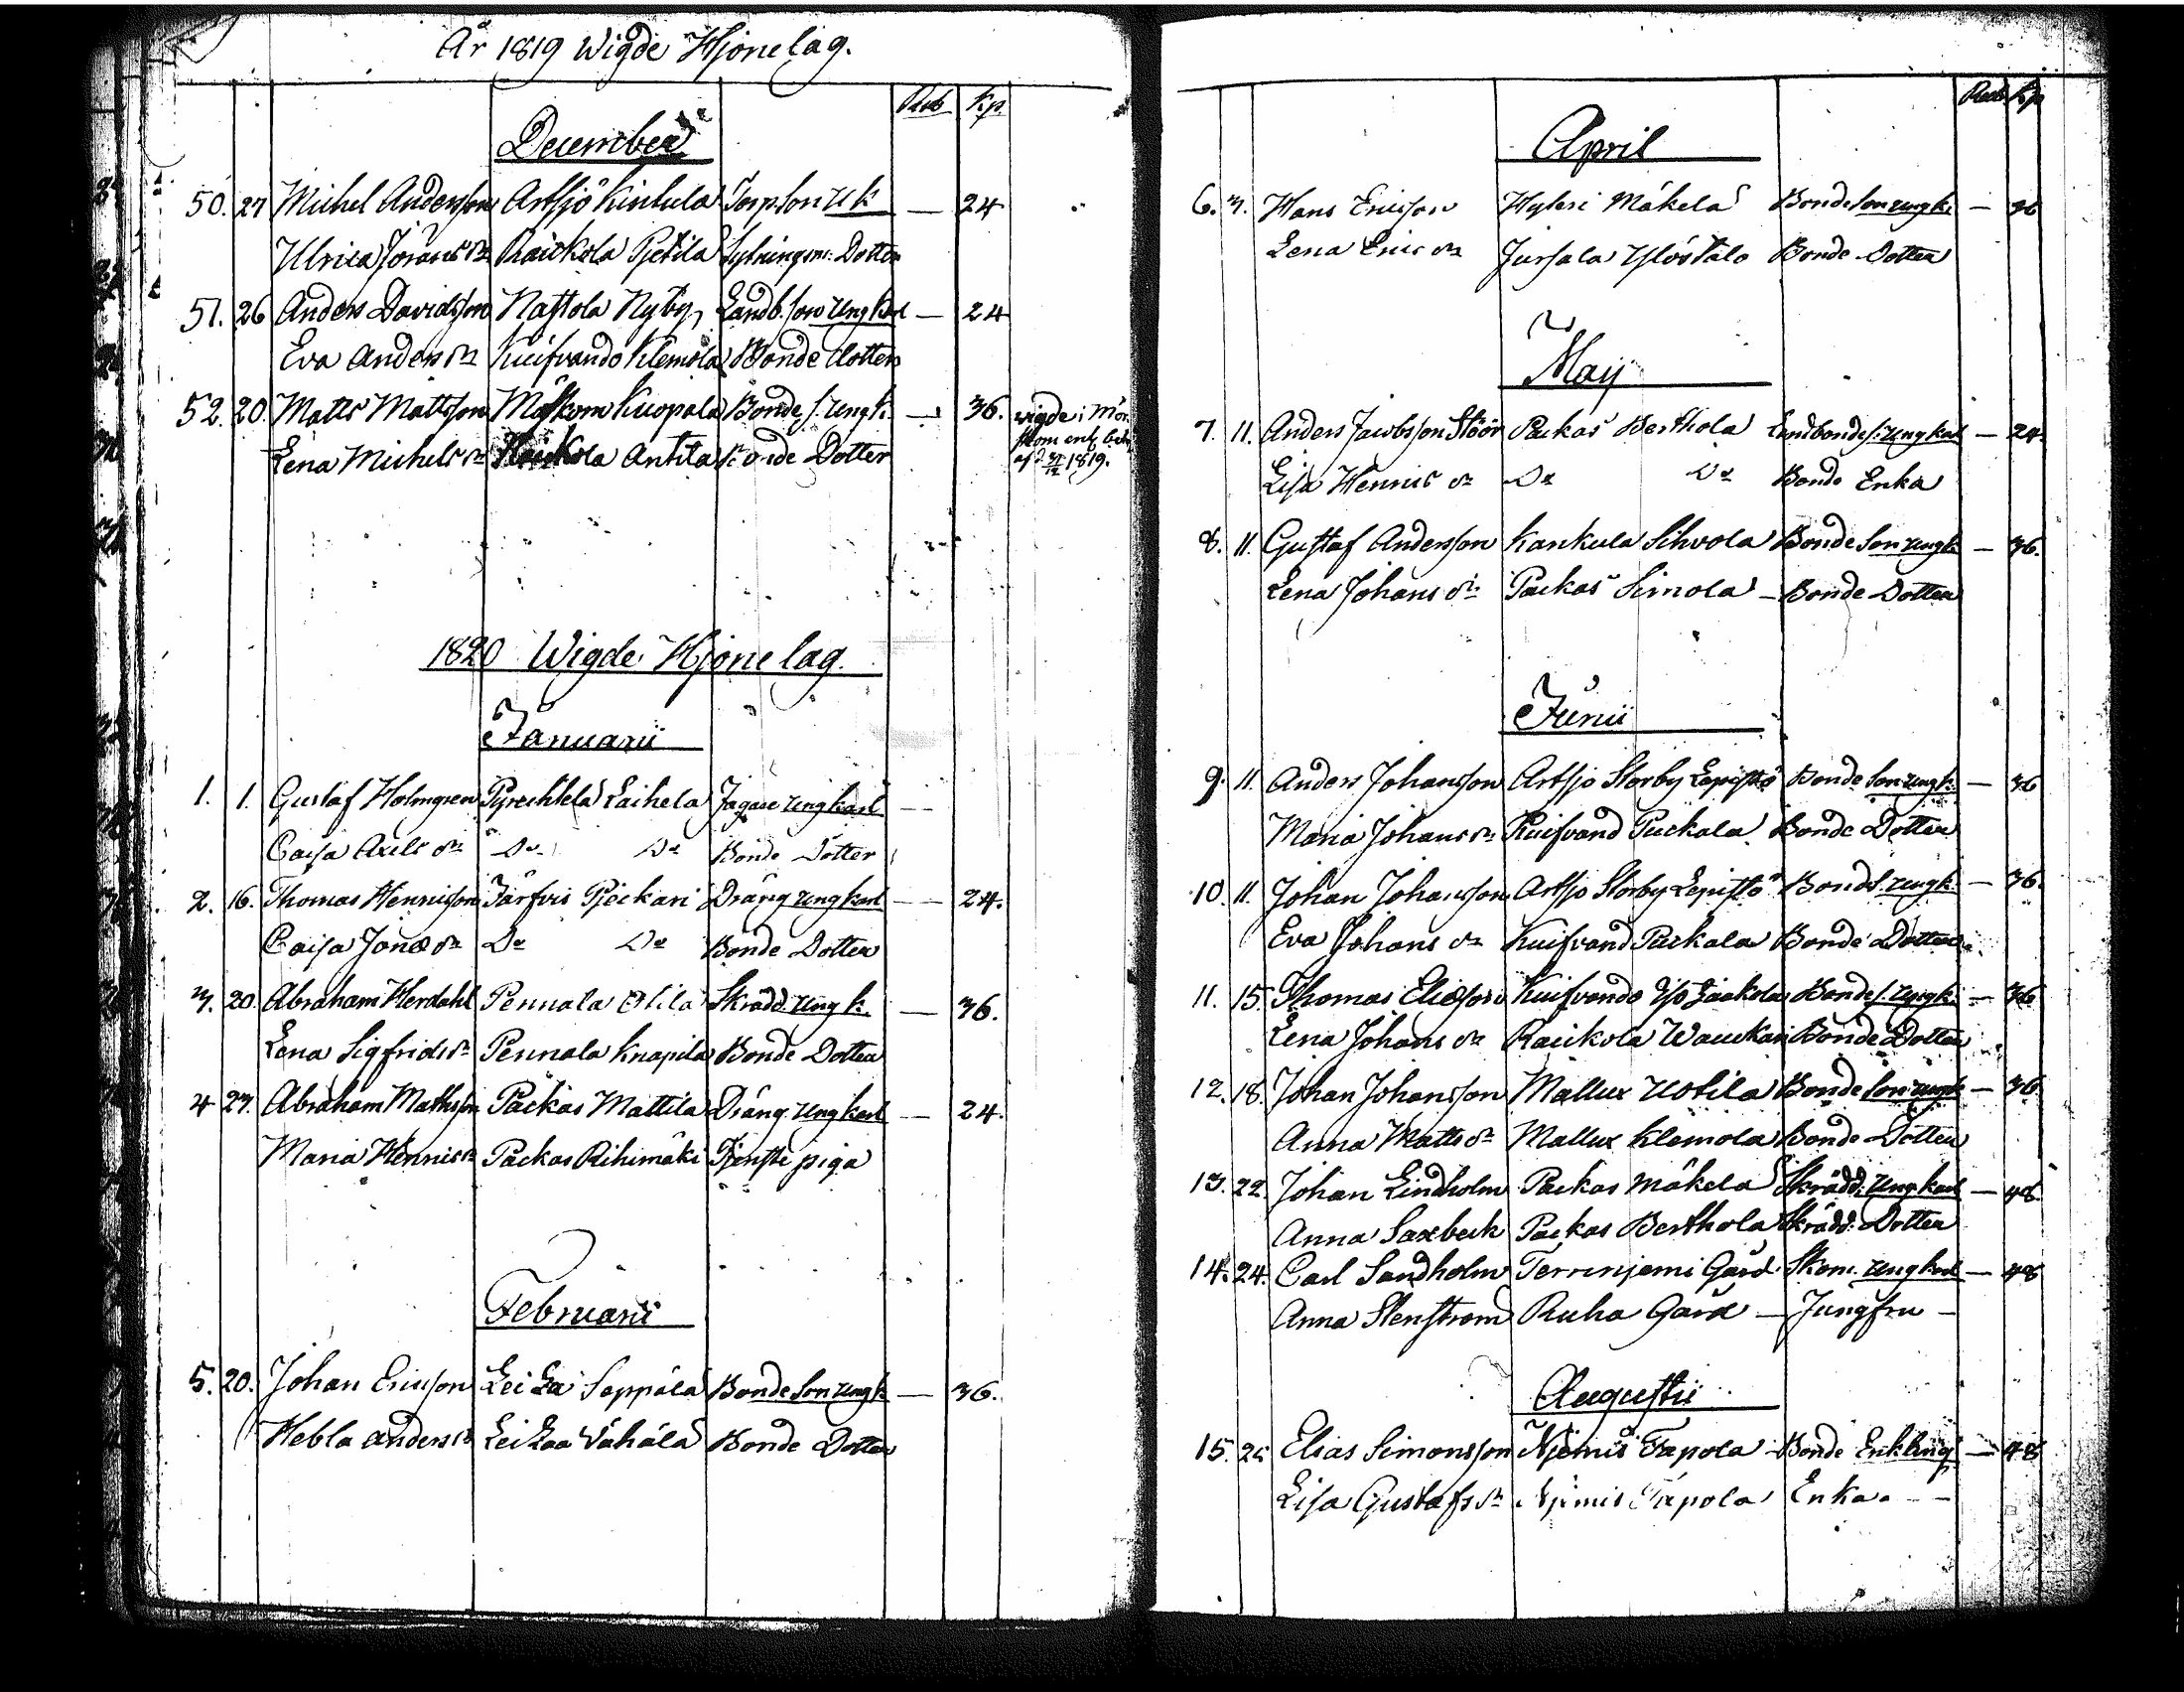 År 1819 Wigde Hjonelag.
Rub Kp
December
50. 27 Michel Andersson Artsjö Kinhula Torp.son u k — 24
Ulrica Jörans dr Raickola Pjetila Sytningsm: Dotter
51. 26 Anders Davidsson Nastola Nyby Landb. son ungkarl — 24
Eva Anders dr Kuifvando Klemola Bonde dotter
52. 20. Matts Mattsson Mörskom Kuopala Bonde s. ungk. — 36. wigde i Mör
Lena Michels dr Raickola Antila Bonde Dotter skom enl. bet.
af d 31/12 1819.
1820 Wigde Hjonelag.
Januarii
1. 1. Gustaf Holmgren Pyrechtelä Laihela Jägare ungkarl —
Caisa Axels dr Do Do Bonde Dotter
2. 16. Thomas Henricsson Järfvis Pjeckari Dräng ungkarl — 24.
Caisa Jonæ dr Do Do Bonde Dotter
3. 20. Abraham Herdahl Pennala Olila Skrädd. ungk. — 36.
Lena Sigfrids dr Pennala Knapila Bonde Dotter
4 23. Abraham Mathsson Packas Mattila Dräng ungkarl — 24.
Maria Henrics dr Packas Rihimäki Tjenste piga
Februarii
5. 20. Johan Ericsson Seppälä Bonde Son ungk. — 36.
Hebla Anders dr Vähälä Bonde Dotter
Rub Kp
April
6. 3. Hans Ericsson Mäkelä Bonde Son ungk. — 36
Lena Erics dr Ylöstalo Bonde Dotter
Maij
7. 11. Anders Jacobsson Stöör Packas Berthola Landbonde s. ungkarl — 24.
Lisa Henrics dr Do Do Bonde Enka
8. 11. Gustaf Andersson Kankula Sihvola Bonde Son ungk. — 36.
Lena Johans dr Packas Simola — Bonde Dotter
Junii
9. 11. Anders Johansson Artsjo Storby Lepistö Bonde Son ungk. — 36
Maria Johans dr Kuifvand Puckala Bonde Dotter
10. 11. Johan Johansson Artsjo Storby Lepistö Bond s. ungk. — 36.
Eva Johans dr Kuifvand Puckala Bonde Dotter
11. 15. Thomas Eliæson Kuifvando Bonde s. ungk. — 36
Lena Johans dr Raickola Wauckari Bonde Dotter
12. 18. Johan Johansson Mallux Uotila Bonde Son ungk — 36
Anna Matts dr Mallux Klemola Bonde Dotter
13. 22. Johan Lindholm Packas Mäkelä Skrädd. ungkarl — 48.
Anna Saxbeck Packas Berthola Skrädd. Dotter
14. 24. Carl Sandholm Terrinjemi Gård Skom. ungkarl — 48
Anna Stenstrom Ruha Gård — Jungfru —
Augustii
15. 25 Elias Simonsson Njemis Tapola Bonde Enkling — 48
Lisa Gustafs dr Njemis Tapola Enka. - —